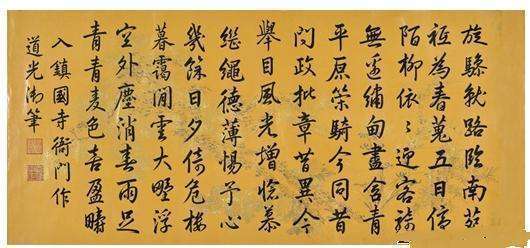 旋驂就路臨南苑
祗為春蒐五日停
陌柳依〻迎客騎
無邊繡甸盡含青
平原策騎今同昔
問政批章昔異今
舉目風光增憶慕
繼繩德薄惕予心
幾餘日夕倚危樓
暮靄閒雲大野浮
空外塵消春雨足
青青麥色喜盈疇
入鎮國寺衙門作
道光御筆